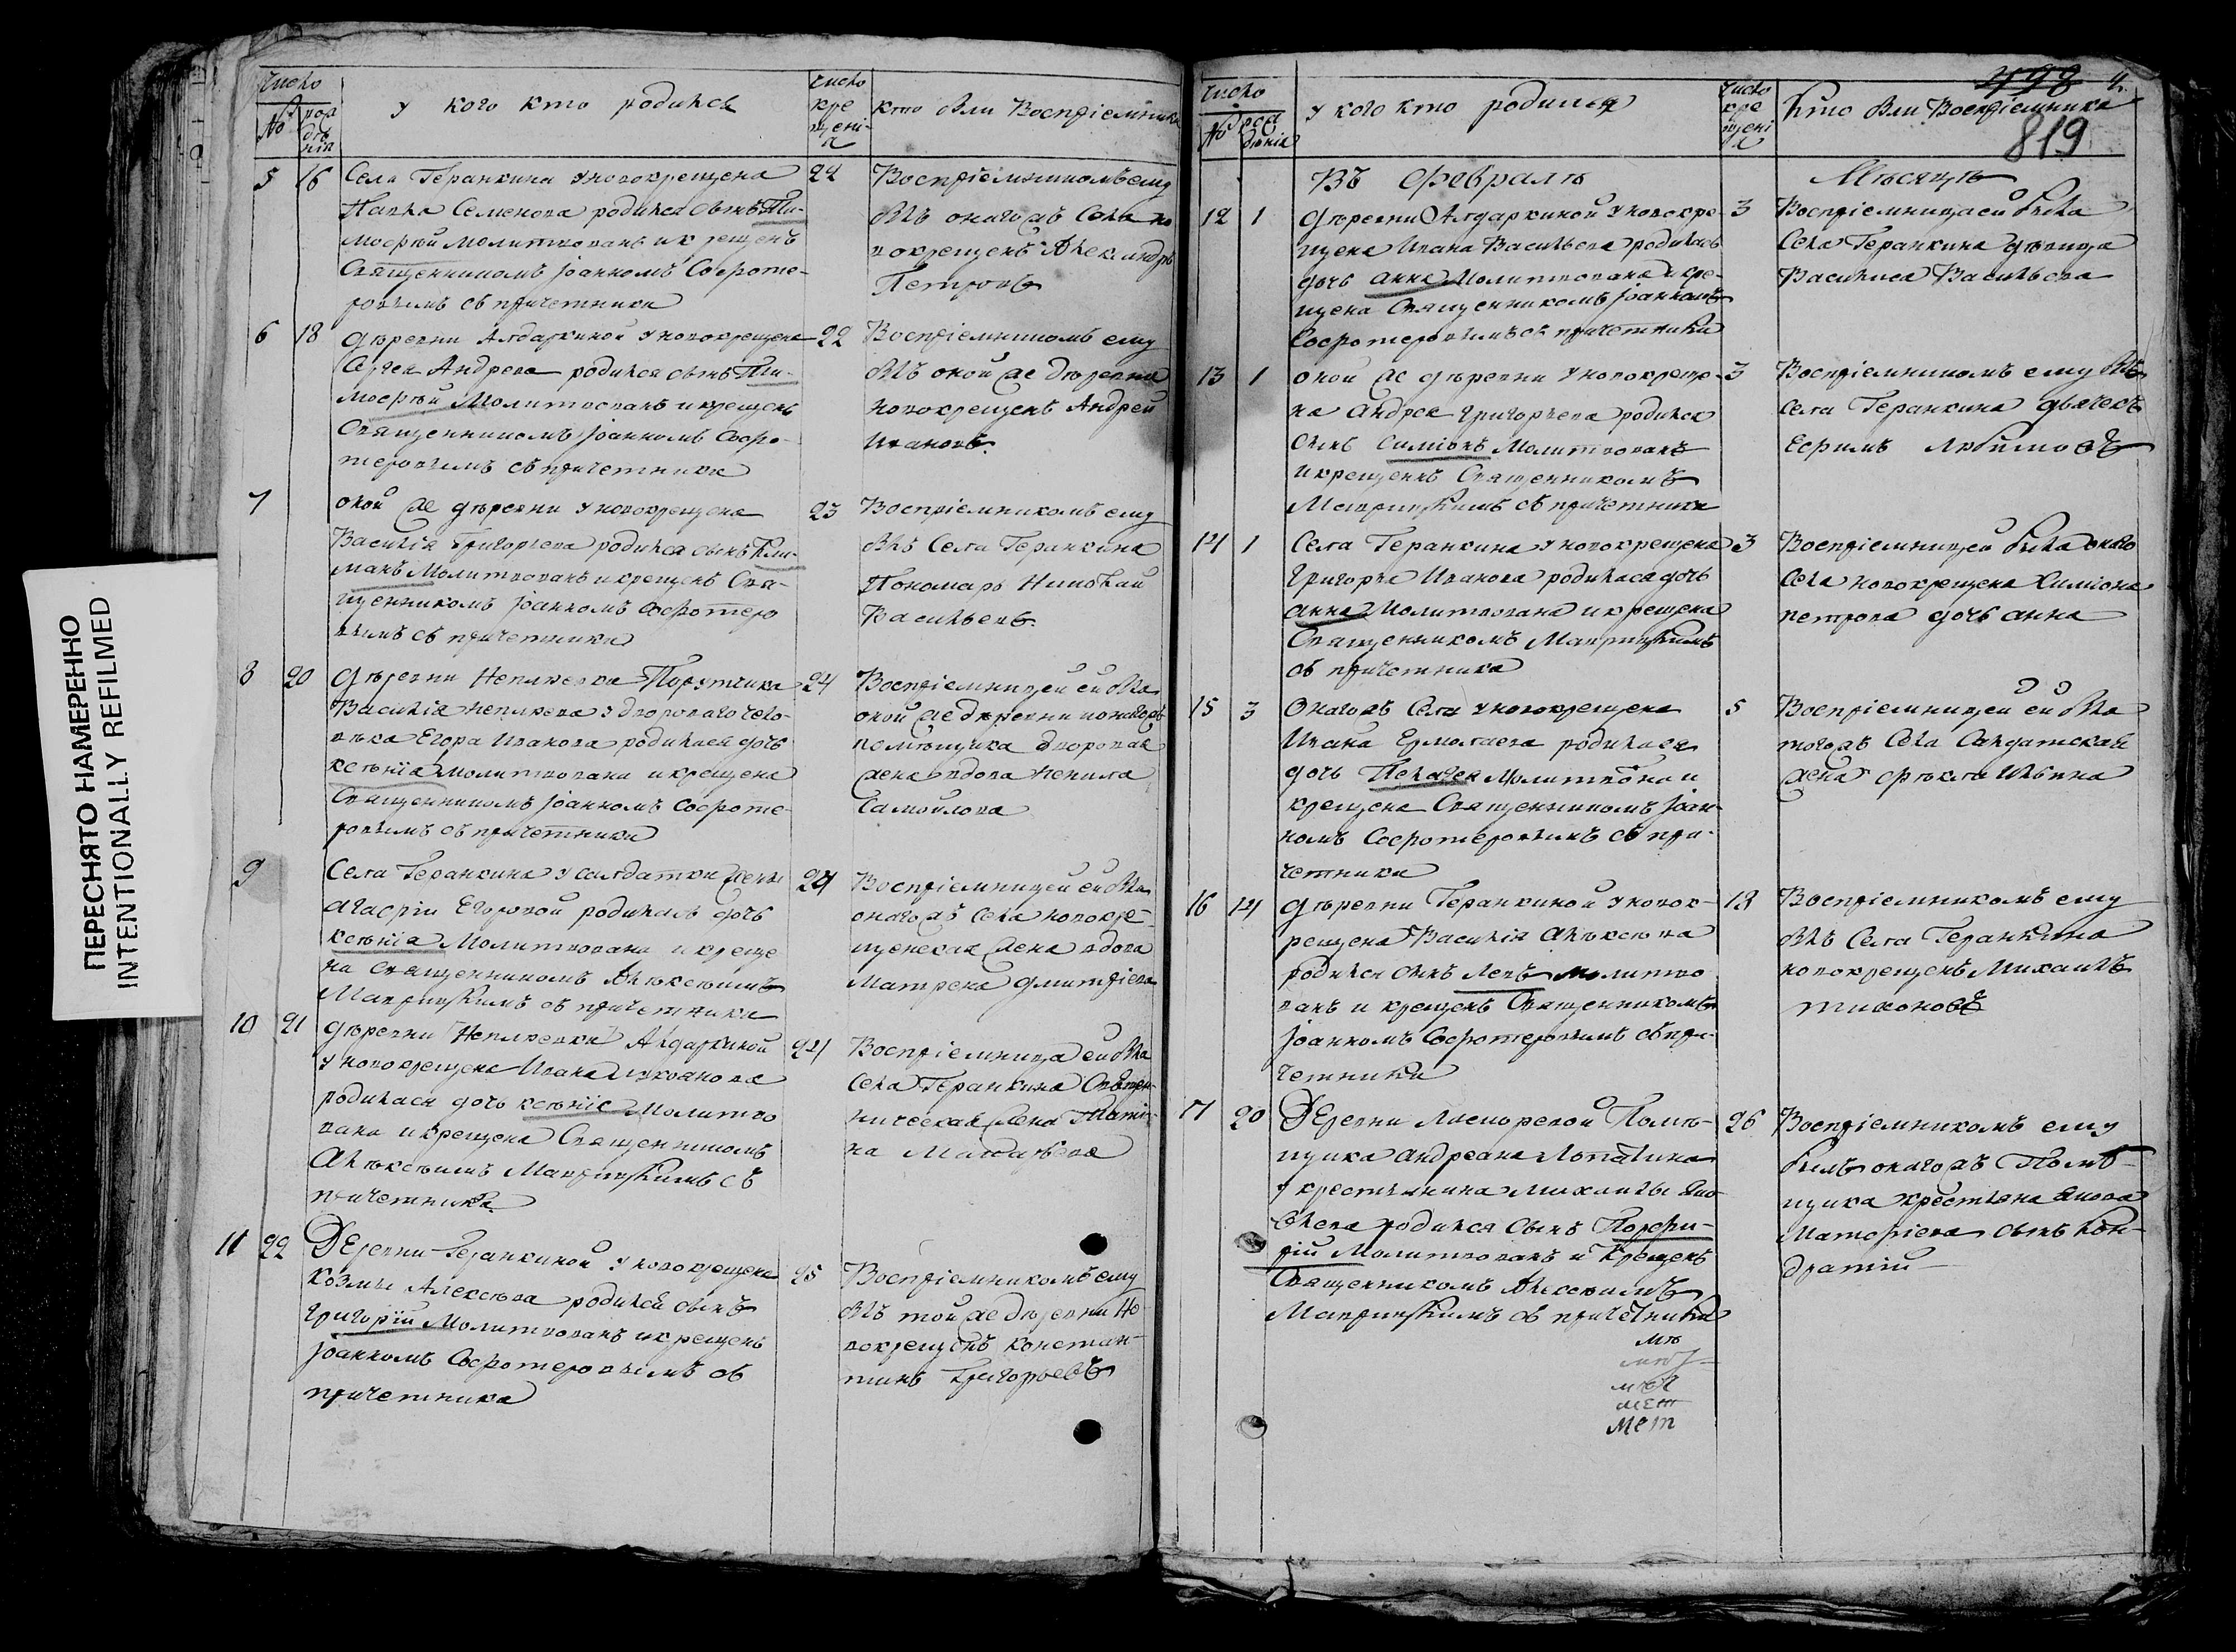 ПЕРЕСНЯТО НАМЕРЕННО
INTENTIONALLY REFILMED
Число
№ рож
дѣ
нія
у кого кто родился
Число
кре
щені
я
кто были Воспріемники
5 16 Села Геранкина у новокрещена 22
Павла Семенова родился сынъ Ти-
мофѣй молитвованъ и крещенъ
Священникомъ Іоанномъ Соφроте-
ровымъ съ причетники
Воспріемникомъ ему
былъ онагожъ Села но
вокрещенъ Александръ
Петровъ
6 18 деревни Алдаркиной у новокрещена 22
Сергея Андреева родился сынъ Ти-
мофѣй Молитвованъ и крещенъ
Священникомъ Іоанномъ Софро-
теровымъ съ причетники
Воспріемникомъ ему
былъ оной же деревни
новокрещенъ Андрей
Ивановъ.
7 оной же деревни у новокрещена 23
Василія Григорьева родился сынъ Кли-
манъ Молитвованъ и крещенъ Свя-
щенникомъ Іоанномъ Софротеро
вымъ съ причетники
Воспріемникомъ ему
былъ Села Геранкина
Пономарь Николай
Васильевъ.
8 20 деревни Неплюевки Порутчика 24
Василія Неплюева у двороваго чело-
века Егора Иванова родилася дочь
ксенія молитвована и крещена
Священникомъ Іоанномъ Софроте-
ровымъ съ причетники
Воспріемницей ей была
оной же деревни и онагожъ
помѣщика дворовая
жена вдова Ненила
Самойлова
9 Села Геранкина у салдатки жены 24
Агафіи Егоровой родилась дочь
ксенія Молитвована и креще
на Священникомъ Алексеимъ
Мавринскимъ съ причетники
Воспріемницей ей была
онагожъ Села новокре-
щенская жена вдова
Матрена Дмитріева
10 21 деревни Неплюевки Алдаркиной 24
у новокрещена Ивана Лукоянова
родилася дочь ксеніе Молитво
вана и крещена Священникомъ
Алексеимъ Мавринскимъ съ
причетники
Воспріемница ей была
Села Геранкина Священ-
ническая жена Татiя-
на Матвѣева
11 22 Деревни Геранкиной у новокрещена 25
Козмы Алексеева родился сынъ
Григорій Молитвованъ и крещенъ
Іоанномъ Софротеровымъ съ
причетники
Воспріемникомъ ему
былъ той же деревни но
вокрещенъ констан-
тинъ Григорьевъ
498 4.
819
Число
№ рож
денія
у кого кто родился
Число
кре
щені
я
кто были Воспріемники
Въ Февралѣ Мѣсяцѣ
12 1 деревни Алдаркиной у новокре- 3
щена Ивана Васильева родилась
дочь анна Молитвована и кре-
щена Священникомъ Іоанномъ
Софротеровымъ съ причетники
Воспріемницаей была
Села Геранкина девица
Василиса Васильева
13 1 оной же деревни у новокреще- 3
на Андрея Григорьева родился
сынъ Симіонъ Молитвованъ
и крещенъ Священникомъ
Мавринскимъ съ причетники
Воспріемникомъ ему былъ
села Геранкина дьячекъ
Ефимъ Любимовъ
14 1 Села Геранкина у новокрещена 3
Григорья Иванова родилася дочь
анна Молитвована и крещена
Священникомъ Мавринскимъ
съ причетники
Воспріемницей была онаго
Села новокрещена Симіона
петрова дочь анна
15 3 Онагожъ Села у новокрещена 5
Ивана Ермолаева родилася
дочь Пелагея Молитвована и
крещена Священникомъ Іоан-
номъ Софротеровымъ съ при-
четники
Воспріемницей ей была
тогожъ Села Салдатская
жена фекла Ильина
16 14 деревни Геранкиной у новок- 18
рещена Василія Алексеева
родился сынъ Левъ молитво
ванъ и крещенъ Священникомъ
Іоанномъ Софротеровымъ съ при-
четники
Воспріемникомъ ему
былъ Села Геранкина
новокрещенъ Михаилъ
тихоновъ
17 20 Деревни Помѣ- 26
щика Андреана Лопатина
у крестьянина Михаилы Яко-
влева родился сынъ Порфи-
рій Молитвованъ и Крещенъ
Священникомъ Алексеимъ
Мавринскимъ съ причетники
Воспріемникомъ ему
былъ онагожъ Помѣ-
щика крестьяна Якова
Матфиева сынъ Кон-
дратий
мет